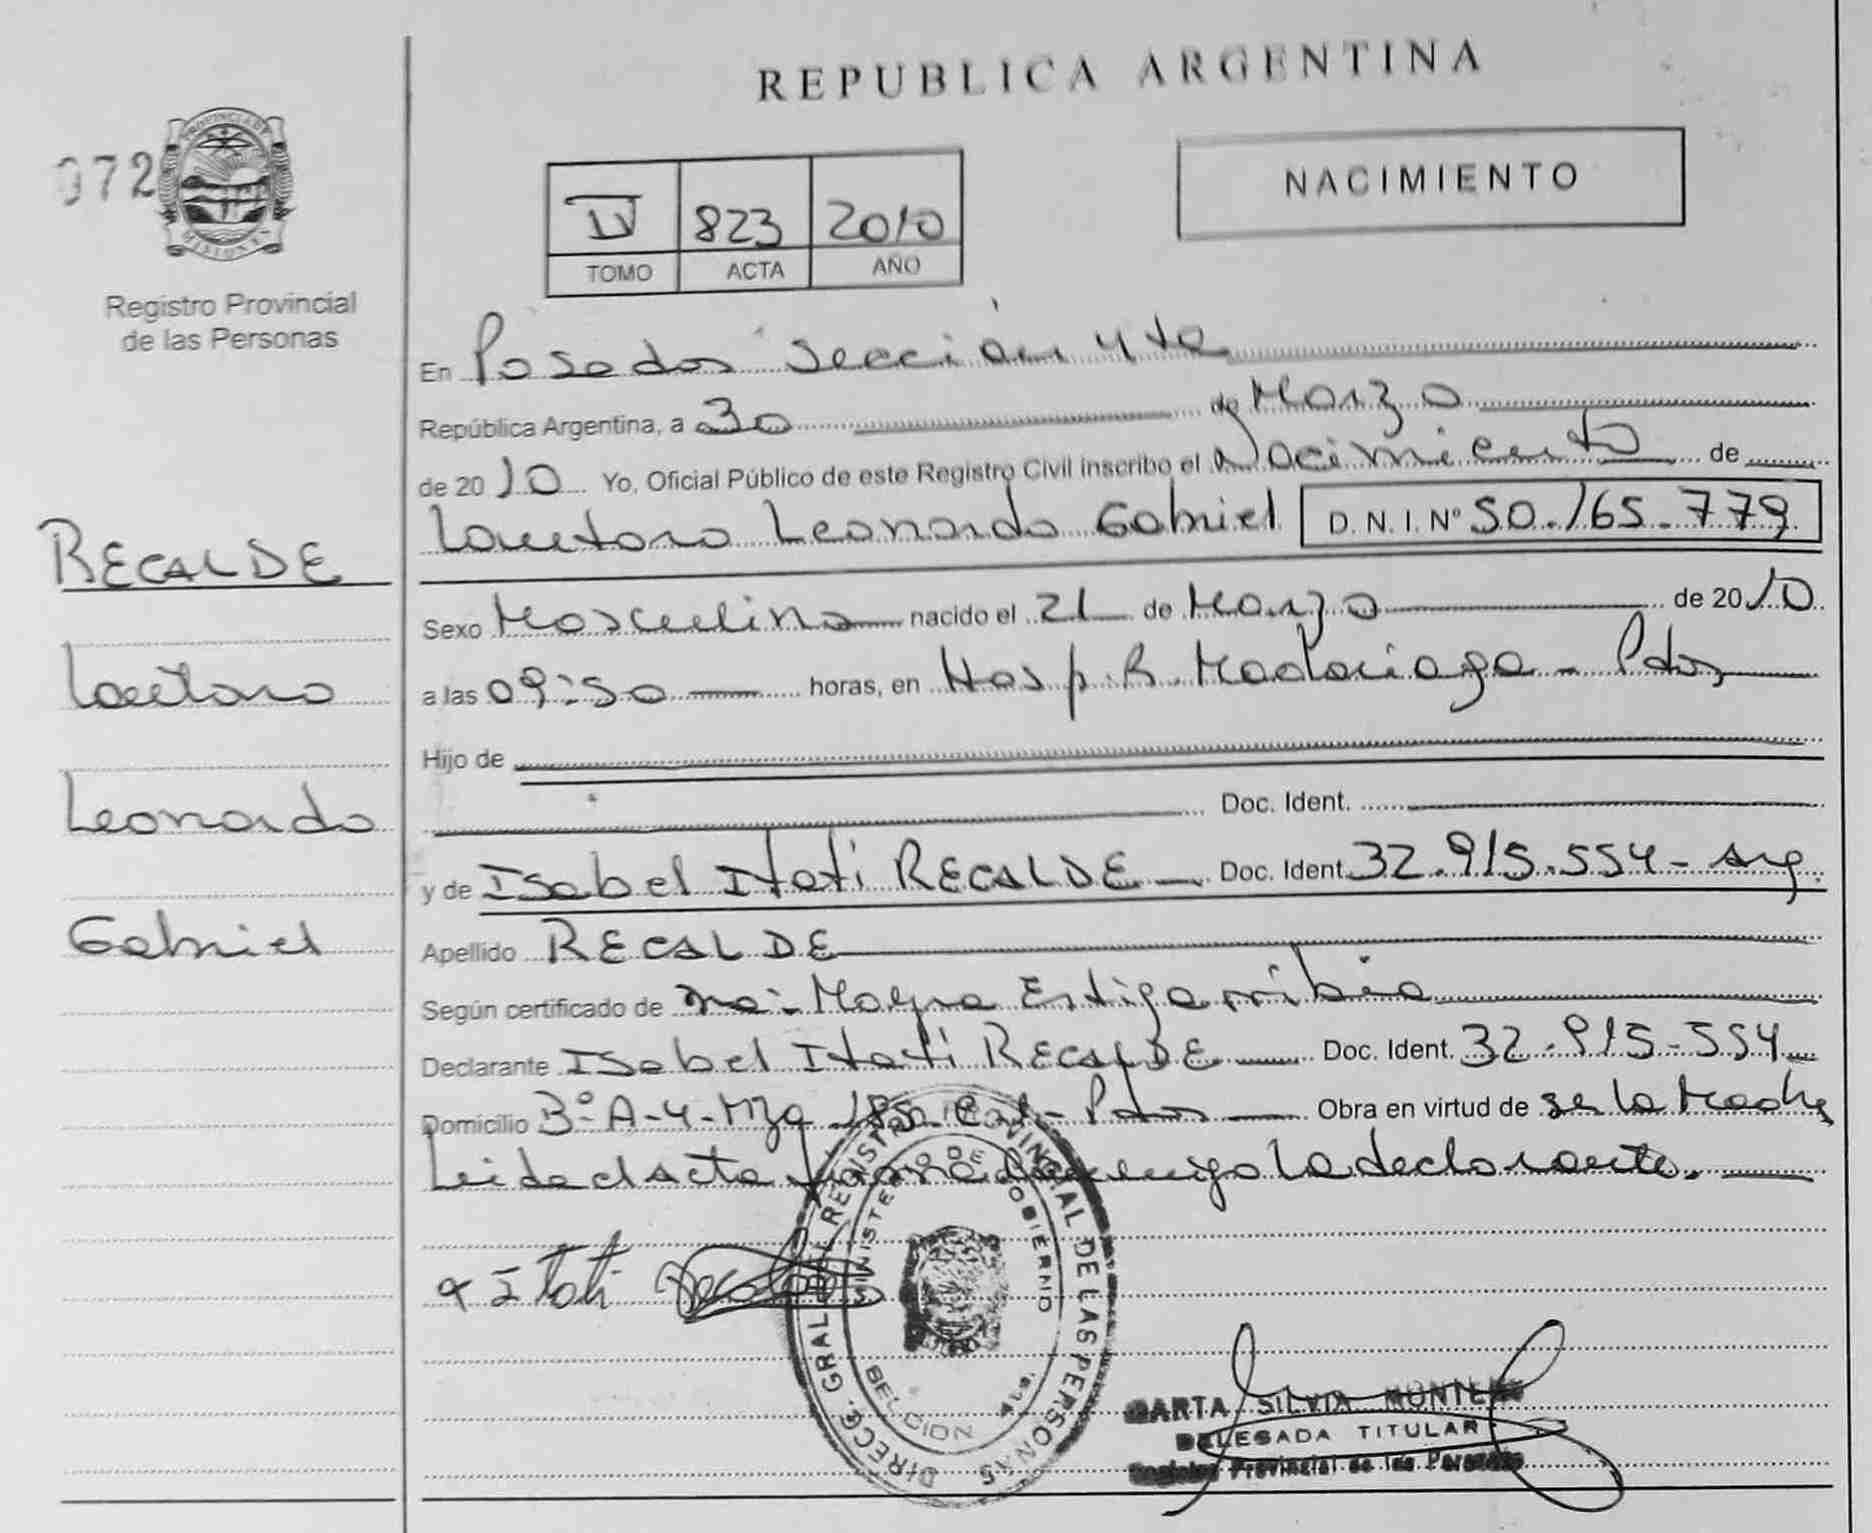 REPUBLICA ARGENTINA
072
PROVINCIA DE MISIONES
Registro Provincial
de las Personas
IV 823 2010
TOMO ACTA AÑO
NACIMIENTO
En Posadas Sección 4ta
República Argentina, a 30 de Marzo
de 2010 Yo, Oficial Público de este Registro Civil inscribo el Nacimiento de
Lautaro Leonardo Gabriel D.N.I. Nº 50.165.779
RECALDE
Lautaro
Leonardo
Gabriel
Sexo Masculino nacido el 21 de Marzo de 2010
a las 09:50 horas, en Hosp. R. Madariaga - Pdas
Hijo de
Doc. Ident.
y de Isabel Itatí RECALDE Doc. Ident. 32.915.554 - Arg.
Apellido RECALDE
Según certificado de Mayra Estigarribia
Declarante Isabel Itatí RECALDE Doc. Ident. 32.915.554
Domicilio Bº A-4 - Mza Pdas Obra en virtud de ser la Madre
Leida el Acta la declarante.
Itati Recalde
DIRECC. GRAL. DEL REGISTRO PROVINCIAL DE LAS PERSONAS
MINISTERIO DE GOBIERNO
SILVIA
DELEGADA TITULAR
Registro Provincial de las Personas